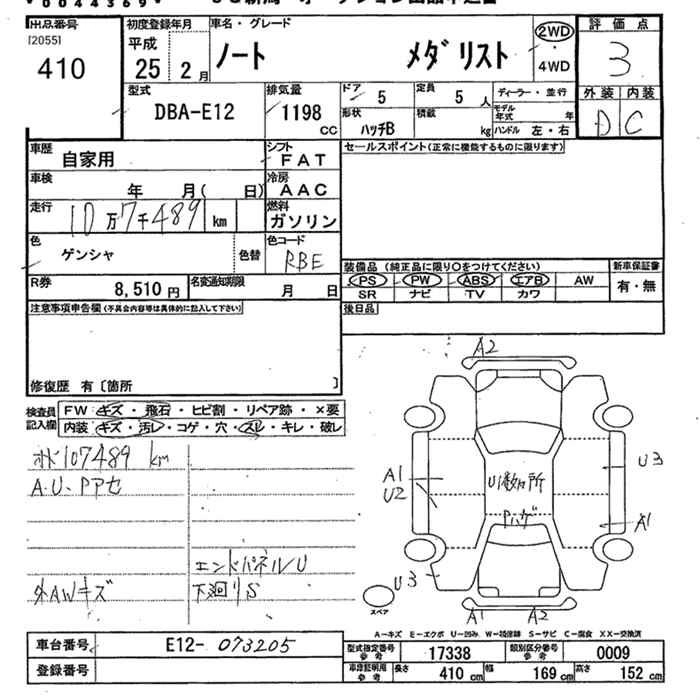 00443697
出品番号
[2055]
410
初度登録年月
平成
25 2月
車名・グレード
ノート メダリスト
2WD
・
4WD
評価点
3
型式
DBA-E12
排気量
1198
CC
ドア 5
定員 5 人
ディーラー・並行
形状
ハッチB
積載
kg
モデル年式 年
ハンドル 左・右
外装 内装
D C
車歴
自家用
シフト
FAT
セールスポイント(正常に機能するものに限ります)
車検
年 月( 日)
冷房
AAC
走行
10万7千489 km
燃料
ガソリン
色
ゲンシャ
色替
色コード
RBE
装備品 (純正品に限り○をつけてください)
新車保証書
PS PW ABS エアB AW
有・無
SR ナビ TV カワ
R券
8,510 円
名変通知期限
月 日
後日品
注意事項申告欄(不具合内容等は具体的に記入して下さい)
修復歴 有〔箇所 〕
検査員
記入欄
FW キズ・飛石・ヒビ割・リペア跡・×要
内装 キズ・汚レ・コゲ・穴・スレ・キレ・破レ
107489 km
A.U.Pアセ
エンドパネルU
外AWキズ
下廻りS
A2
A1
U2
U1数ヶ所
Pハゲ
U3
A1
U3
A1 A2
スペア
A−キズ E−エクボ U−凹み W−補修跡 S−サビ C−腐食 XX−交換済
車台番号
E12- 073205
登録番号
型式指定番号
参考
17338
類別区分番号
参考
0009
車庫証明用
参考
長さ 410 cm
幅 169 cm
高さ 152 cm